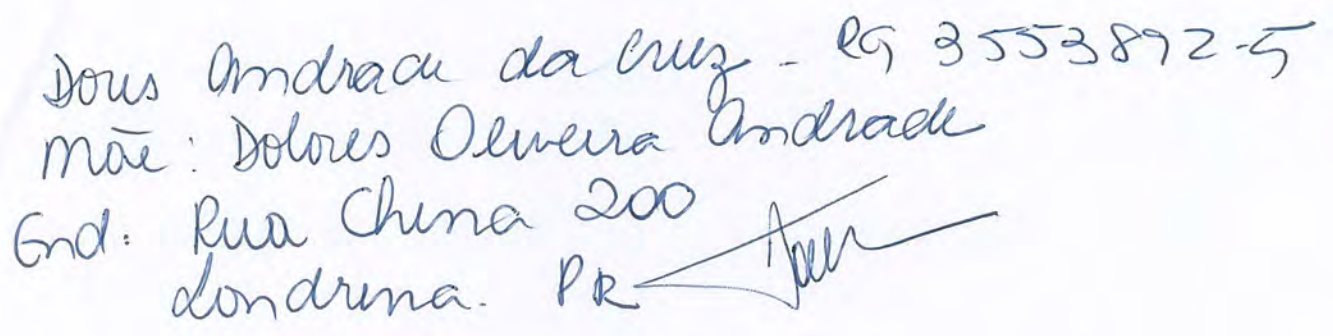 Doris Andrade da Cruz - RG 3553892-5
Mãe: Dolores Oliveira Andrade
End: Rua China 200
Londrina. PR